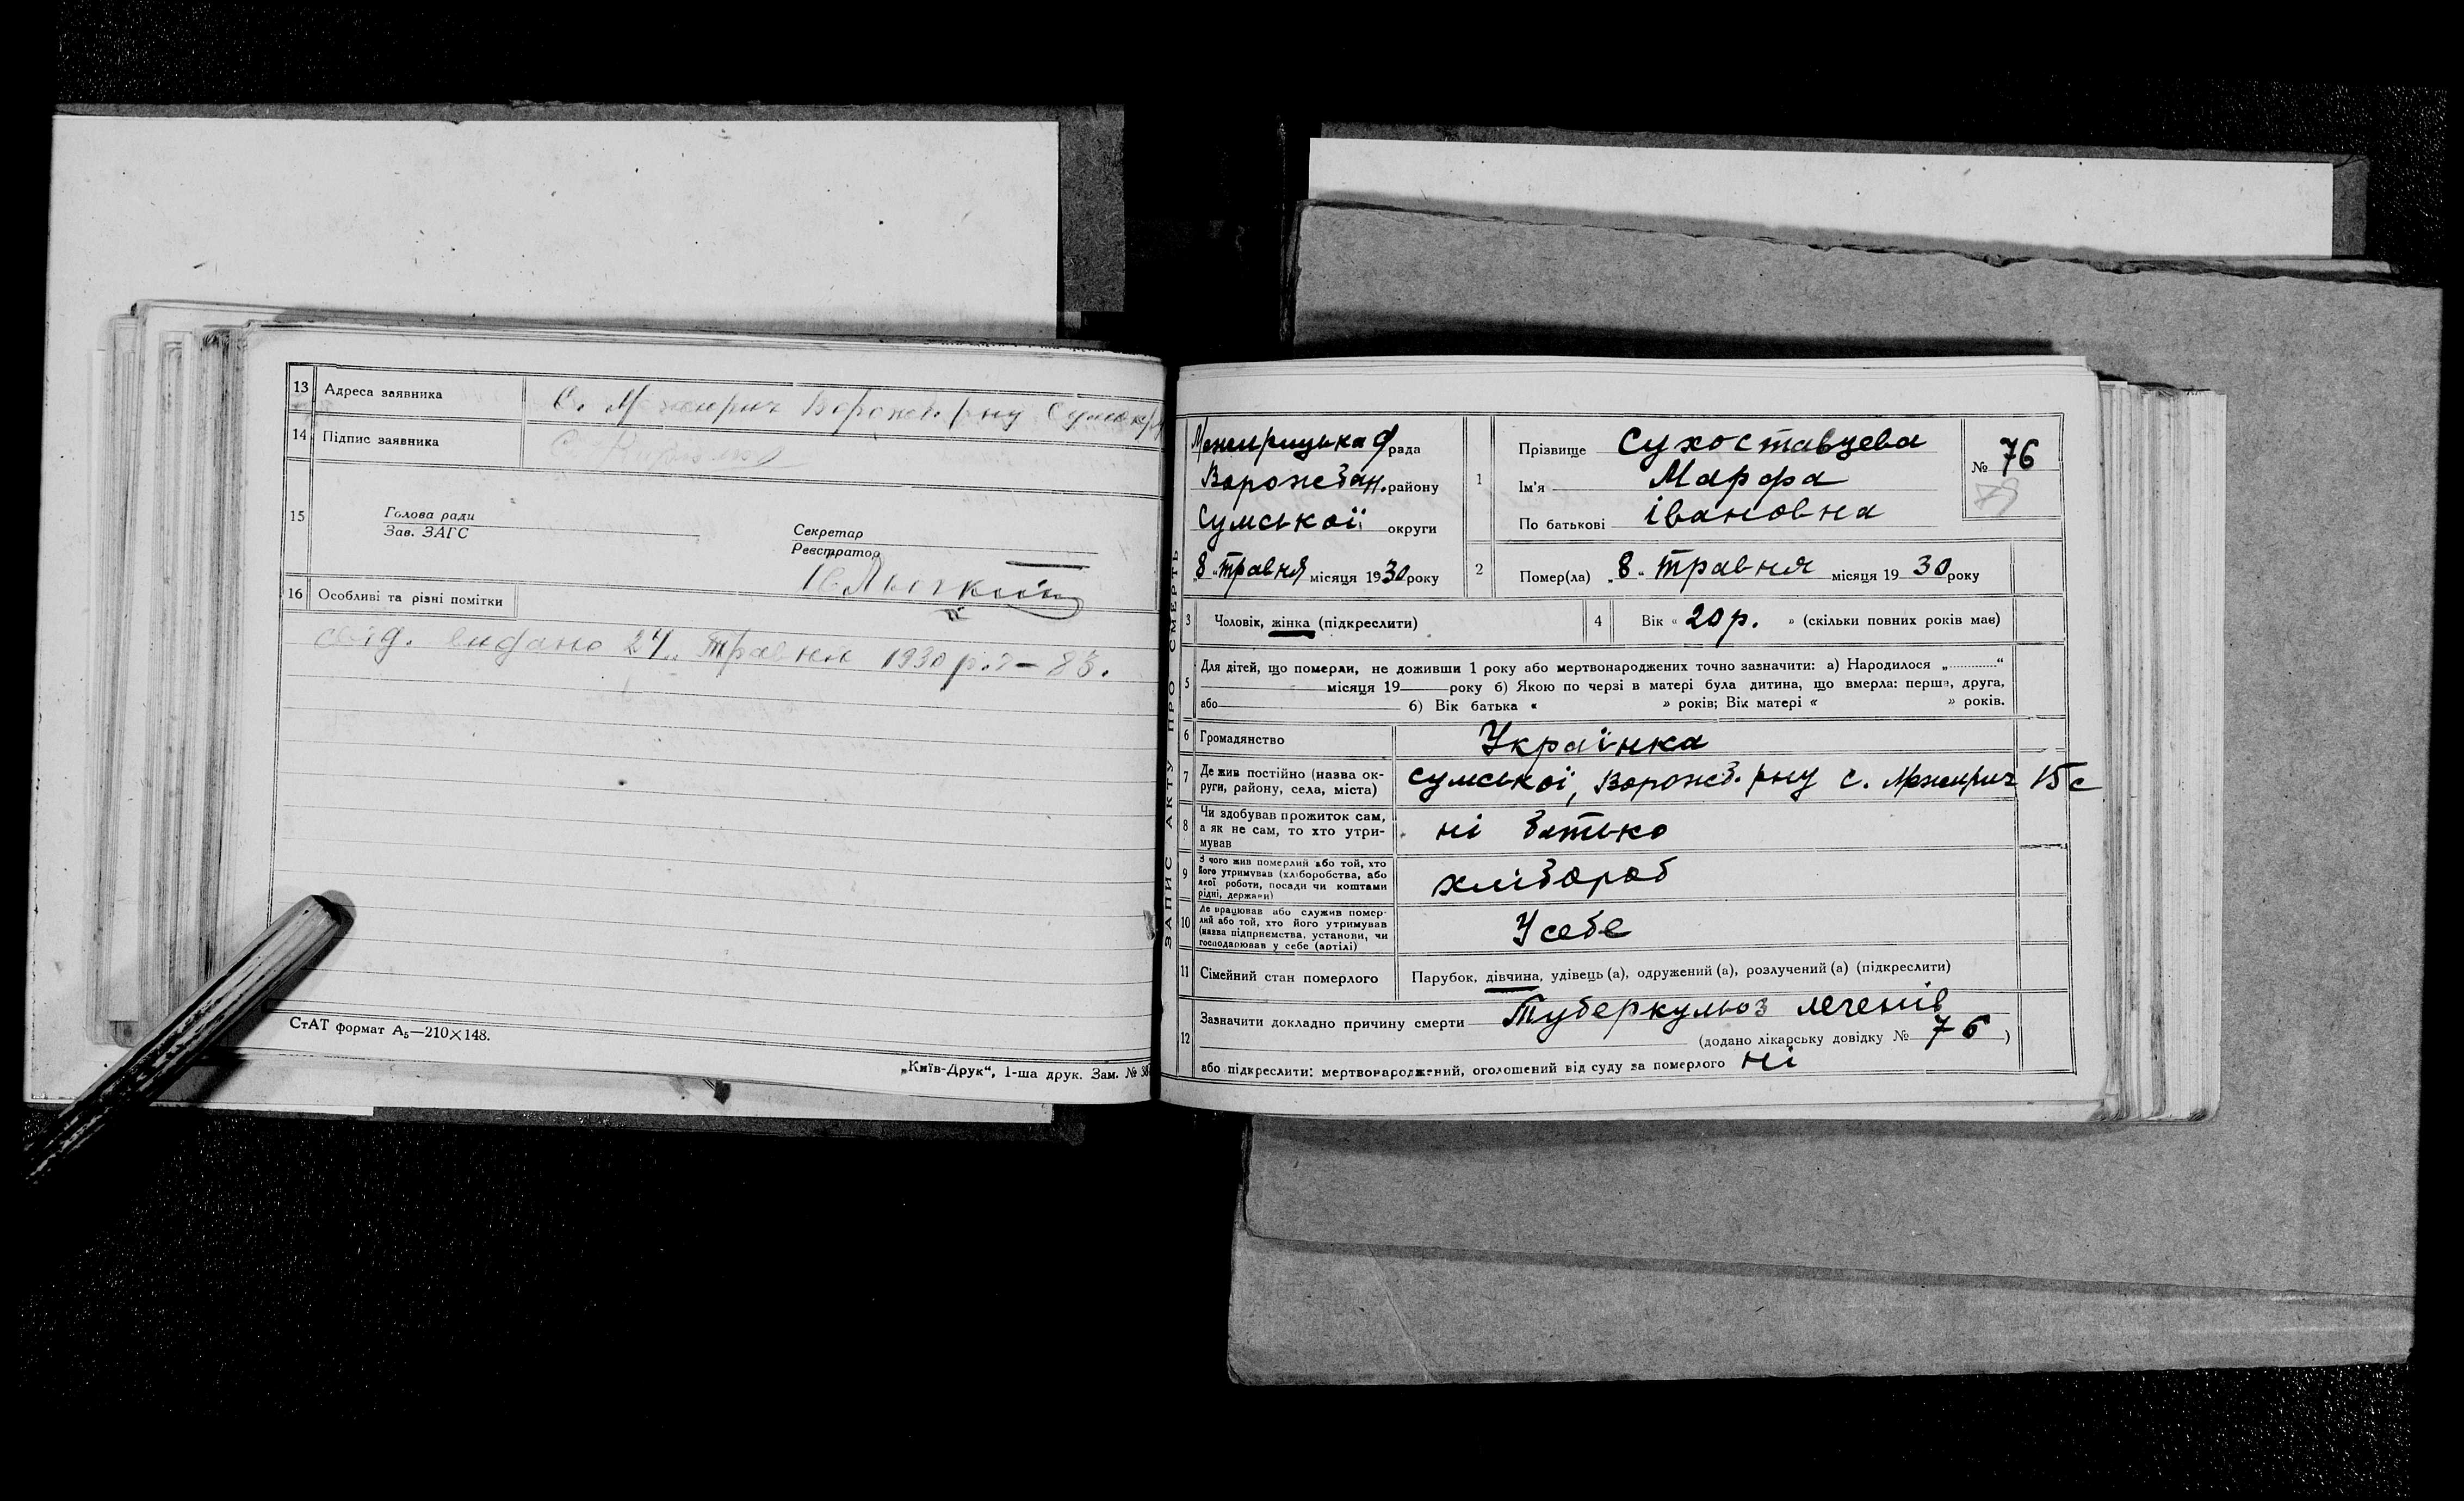 13 Адреса заявника С. Межирич Ворожб. р-ну Сумськ.
14 Підпис заявника
15 Голова ради
Зав. ЗАГС
Секретар
Реєстратор
16 Особливі та різні помітки
свід. видано 24 „ травня 1930 р.
СтАТ формат А₅—210×148.
„Київ-Друк“, 1-ша друк. Зам. №
ЗАПИС АКТУ ПРО СМЕРТЬ
Межирицька рада
Ворожбян. району
Сумської округи
„8„ травня місяця 1930 року
1 Прізвище Сухоставцева
Ім'я Марфа
По батькові івановна
№ 76
2 Помер(ла) „8„ травня місяця 1930 року
3 Чоловік, жінка (підкреслити)
4 Вік « 20 р. » (скільки повних років має)
5 Для дітей, що померли, не доживши 1 року або мертвонароджених точно зазначити: а) Народилося „............“
місяця 19 року б) Якою по черзі в матері була дитина, що вмерла: перша, друга,
або б) Вік батька « » років; Вік матері « » років.
6 Громадянство Українка
7 Де жив постійно (назва ок-
руги, району, села, міста) сумської, Ворожб. р-ну с. Межирич 15 с
8 Чи здобував прожиток сам,
а як не сам, то хто утри-
мував ні батько
9 З чого жив померлий або той, хто
його утримував (хліборобства, або
якої роботи, посади чи коштами
рідні, держави) хлібороб
10 Де працював або служив помер-
лий або той, хто його утримував
(назва підприємства, установи, чи
господарював у себе (артілі) У себе
11 Сімейний стан померлого Парубок, дівчина, удівець (а), одружений (а), розлучений (а) (підкреслити)
12 Зазначити докладно причину смерти Туберкульоз легенів
(додано лікарську довідку № 76)
або підкреслити: мертвонароджений, оголошений від суду за померлого ні